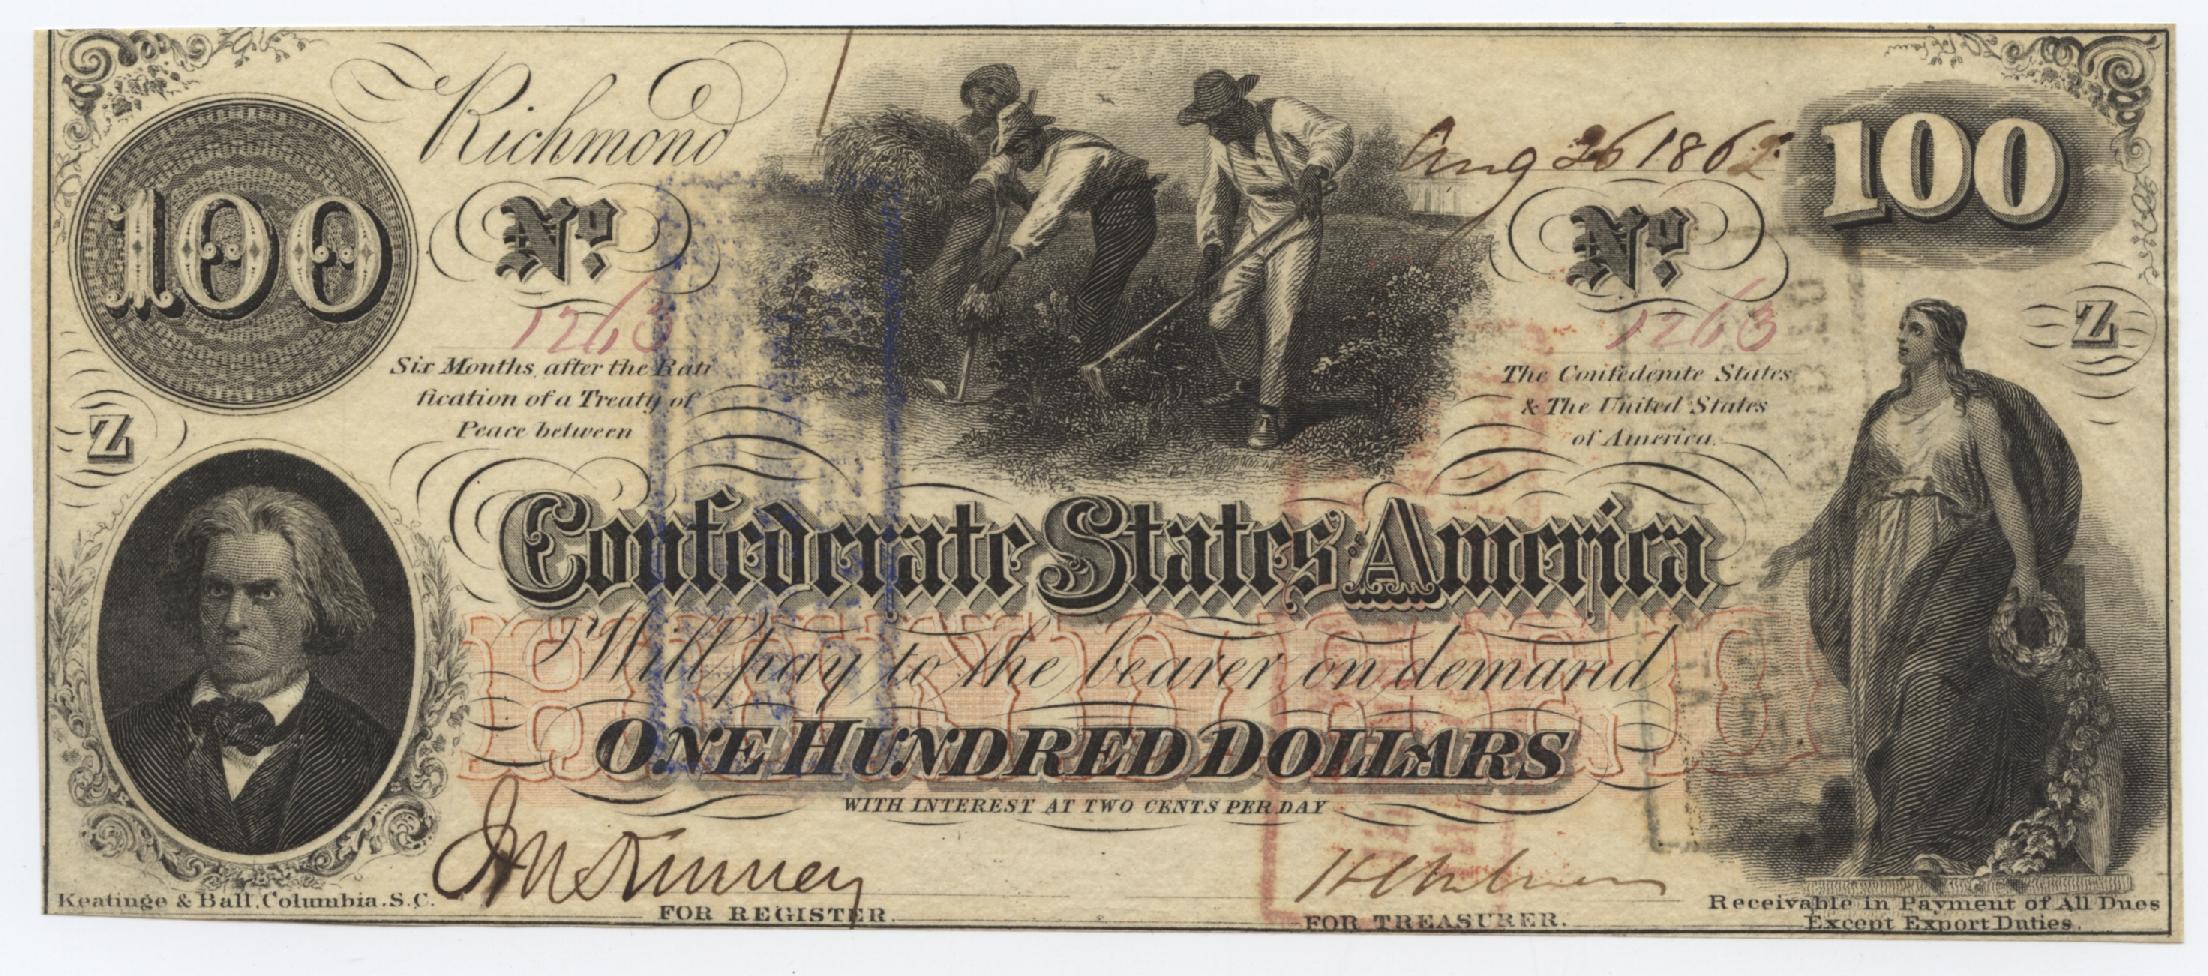 Richmond
Aug 26 1862
100
100
No.
No.
1263
1263
Six Months, after the Rati
fication of a Treaty of
Peace between
The Confederate States
& The United States
of America.
Z
Z
Confederate States of America
Will pay to the bearer on demand
HUNDRED
ONE HUNDRED DOLLARS
WITH INTEREST AT TWO CENTS PER DAY
Keatinge & Ball, Columbia. S.C.
FOR REGISTER.
FOR TREASURER.
Receivable in Payment of All Dues
Except Export Duties.